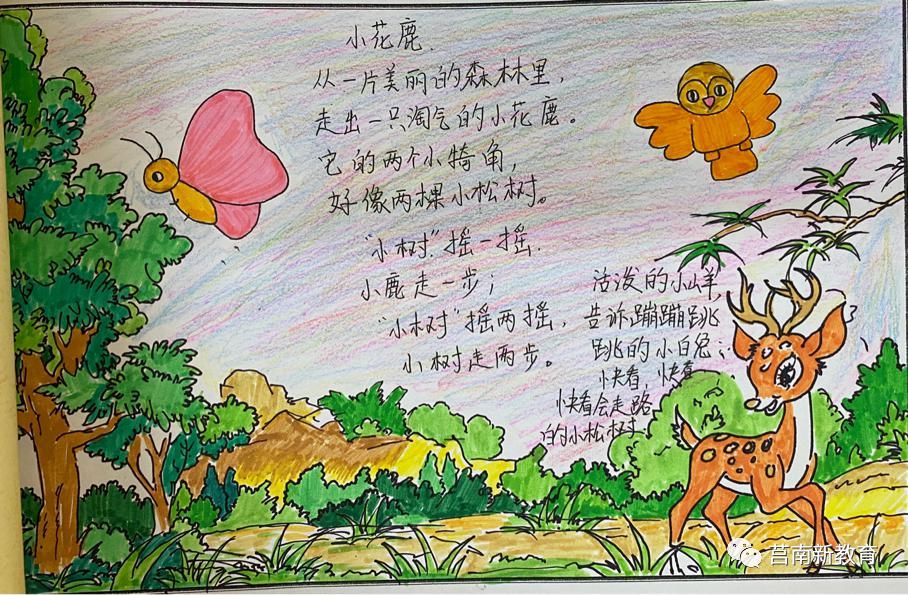 小花鹿.
从一片美丽的森林里，
走出一只淘气的小花鹿。
它的两个小犄角，
好像两棵小松树。
“小树”摇一摇.
小鹿走一步；
“小树”摇两摇，
小树走两步。
活泼的小山羊,
告诉蹦蹦跳
跳的小白兔；
快看，快看
快看会走路
的小松树
莒南新教育